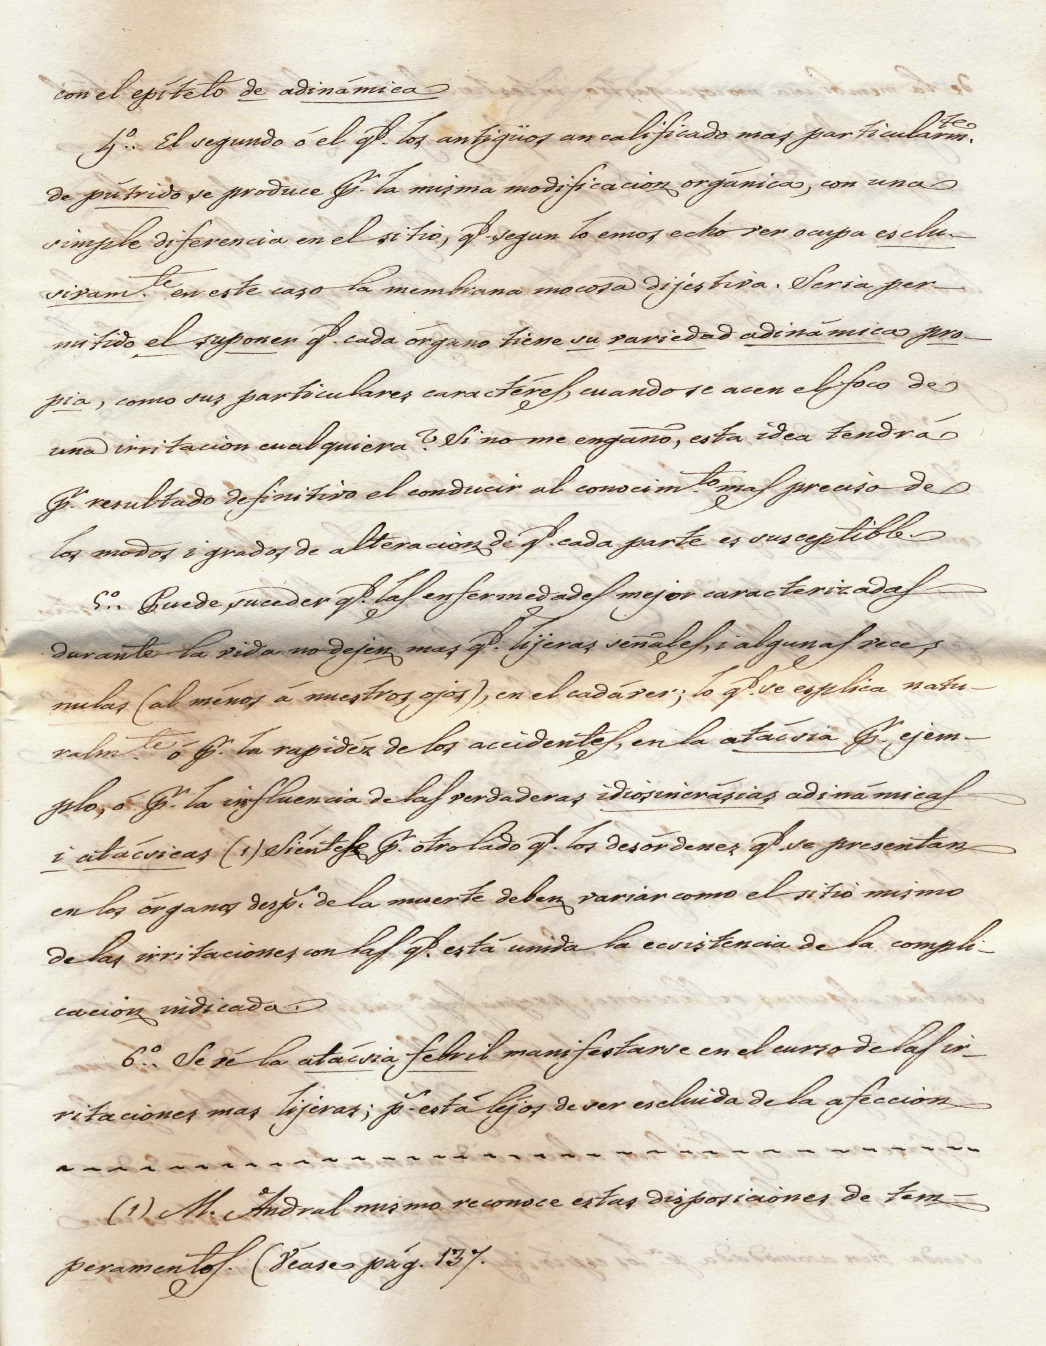 con el epíteto de adinámica
4º.. El segundo ó el q.e los antigüos an calificado mas particularm.te
de pútrido, se produce p.r la misma modificacion orgánica, con una
simple diferencia en el sitio, q.e segun lo emos echo ver ocupa esclu-
sivam.te en este caso la membrana mocosa dijéstiva. Seria per-
mitido el suponer q.e cada órgano tiene su variedad adinámica pro-
pia, como sus particulares caractéres, cuando se acen el foco de
una irritacion cualquiera? Si no me engaño, esta idea tendrá
p.r resultado definitivo el conducir al conocim.to mas preciso de
los modos i grados de alteracion de q.e cada parte es susceptible.
5º.. Puede suceder q.e las enfermedades mejor caracterizadas
durante la vida no dejen mas q.e lijeras señales, i algunas veces
nulas (al ménos á nuestros ojos), en el cadáver; lo q.e se esplica natu-
ralm.te ó p.r la rapidéz de los accidentes, en la atácsia p.r ejem-
plo, ó p.r la influencia de las verdaderas idiosincrásias adinámicas
i atácsicas (1) Siéntese p.r otro lado q.e los desórdenes q.e se presentan
en los órganos desp.s de la muerte deben variar como el sitio mismo
de las irritaciones con las q.e está unida la ecsistencia de la compli-
cacion indicada.
6º.. Se vé la atácsia febril manifestarse en el curso de las ir-
ritaciones mas lijeras; p.s está lejos de ser escluida de la afeccion
(1) M. Andral mismo reconoce estas disposiciones de tem-
peramentos. (Véase pág. 137.